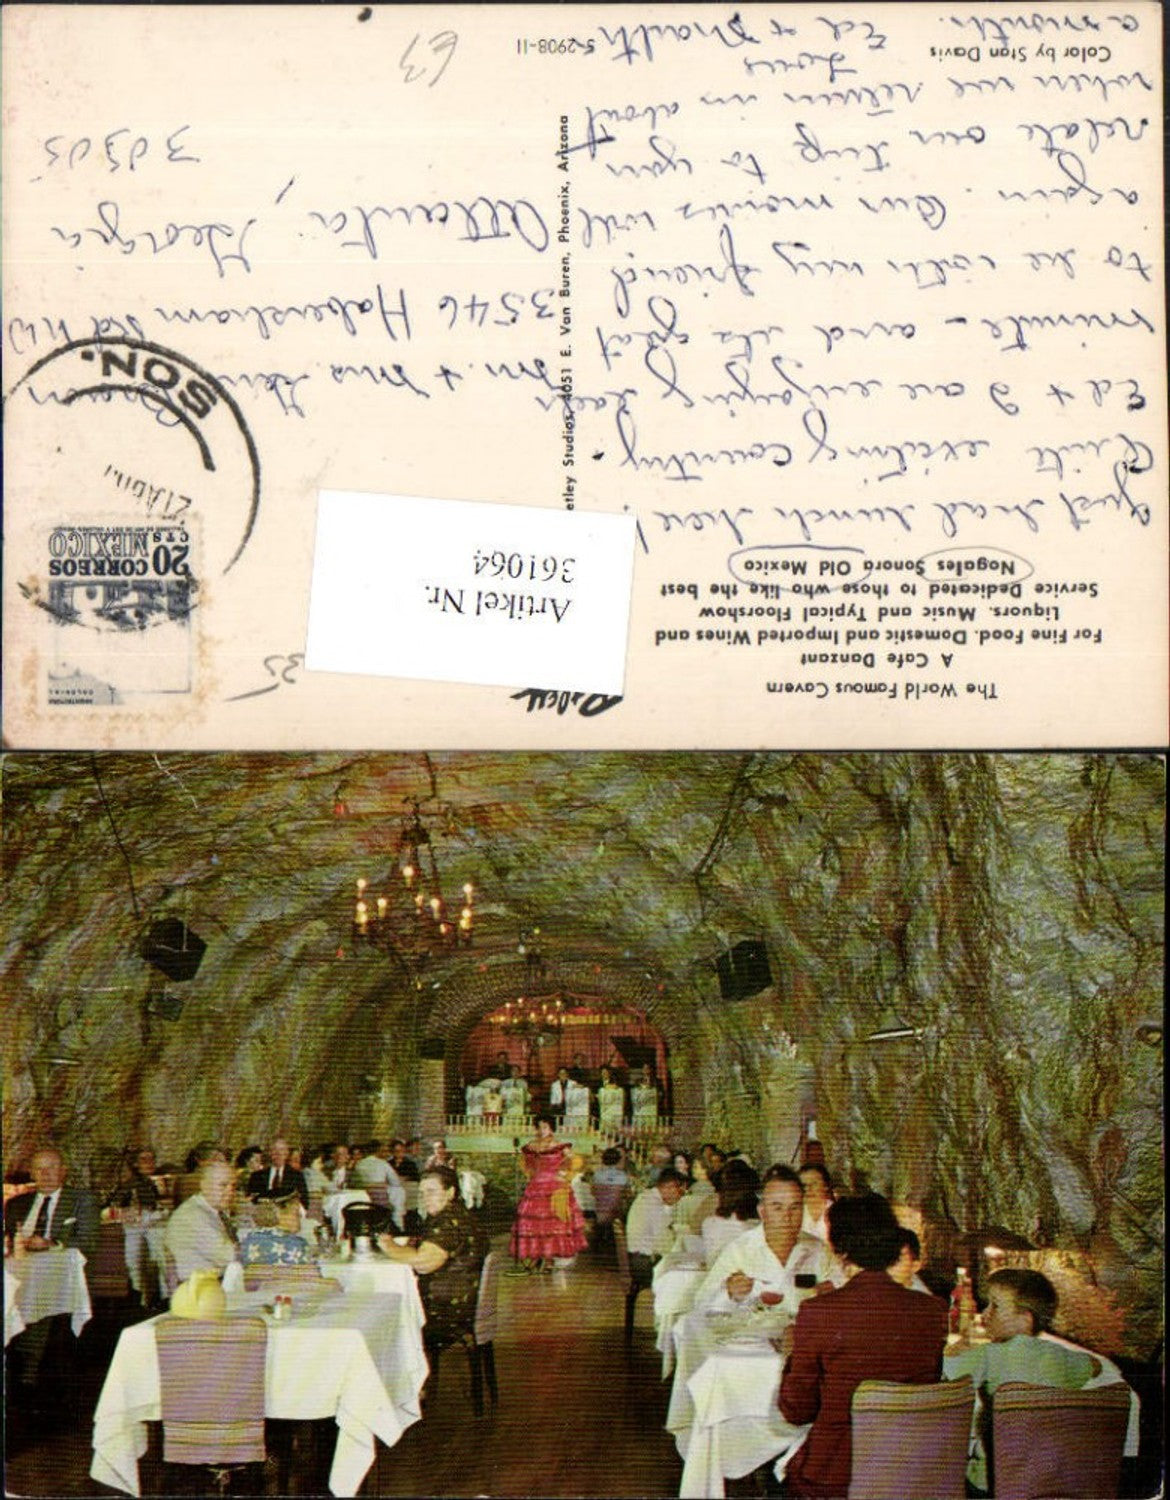 The World Famous Cavern
A Cafe Danzant
For Fine Food. Domestic and Imported Wines and
Liquors. Music and Typical Floorshow
Service Dedicated to those who like the best
Nogales Sonora Old Mexico
Just had lunch here!
Quite exciting country.
Ed + I are enjoying each
minute - and its great
to be with my friend
again. Our movies will
relate our trip to you
when we return in about
a month.
Love
Ed +
Color by Stan Davis
Petley Studios, 4051 E. Van Buren, Phoenix, Arizona
S-2908-11
35
CORREOS
MEXICO
20 CTS
COLONIAL
SON.
Mr. + Mrs.
3546 Habersham Rd NW
Atlanta, Georgia
30305
63
Artikel Nr.
361064